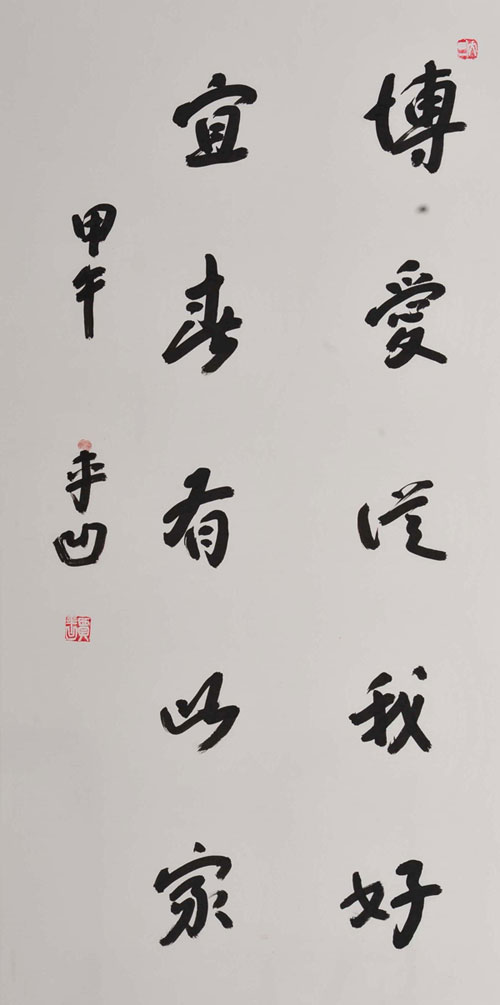 博愛從我好
宜春有此家
甲午
平凹